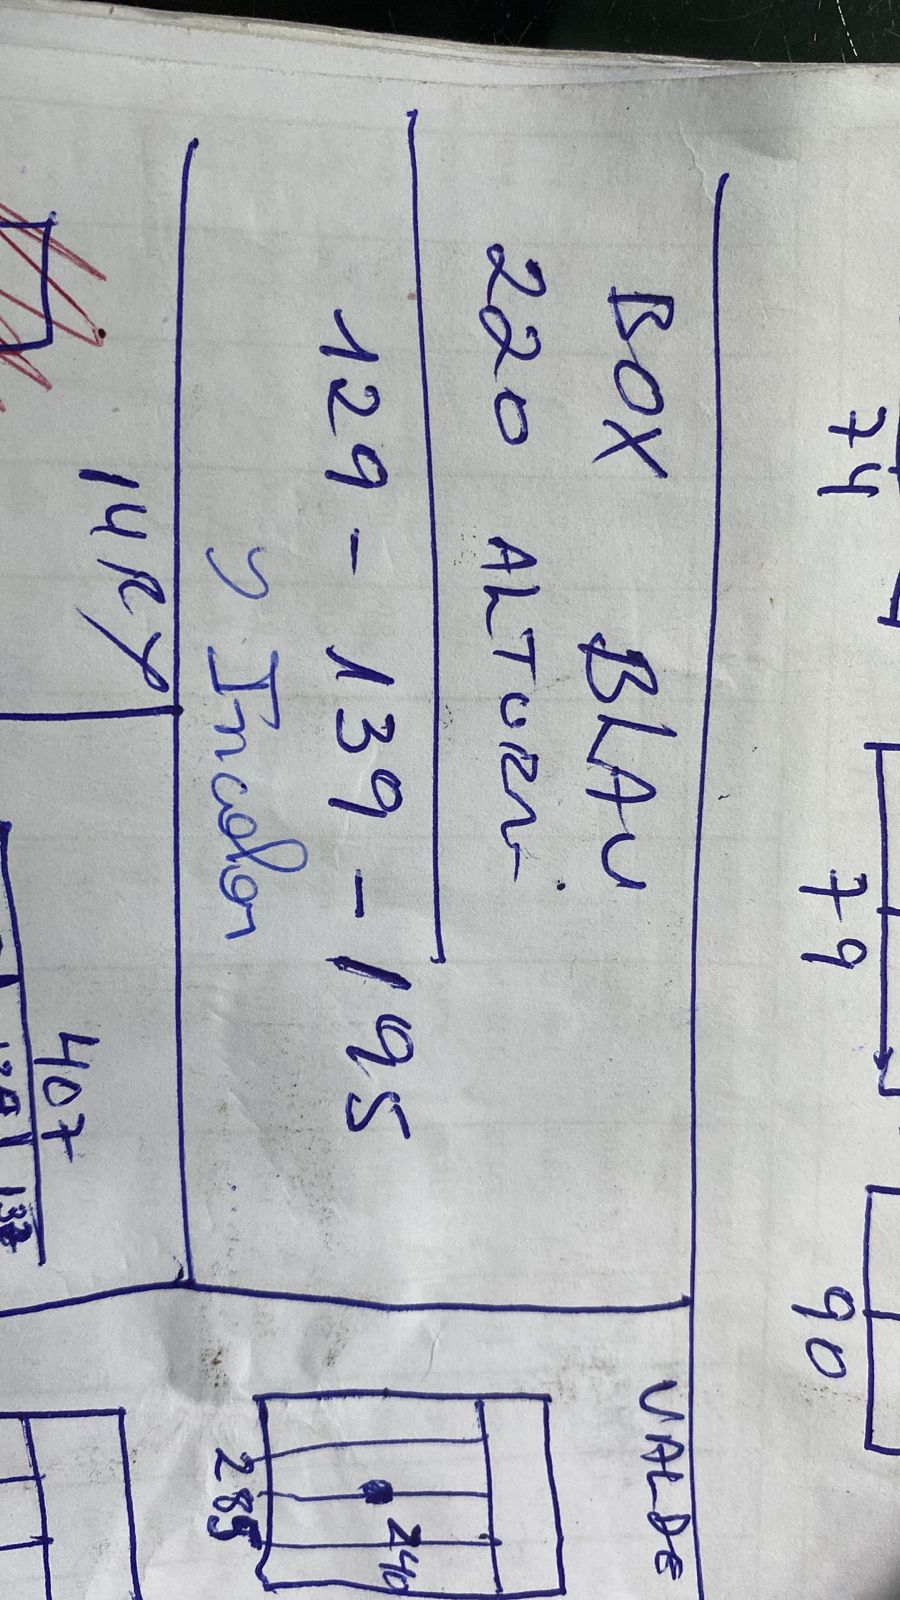 74
79
90
BOX BLAU
220 ALTURA
129 - 139 - 195
Incolor
VALDE
240
285
407
137